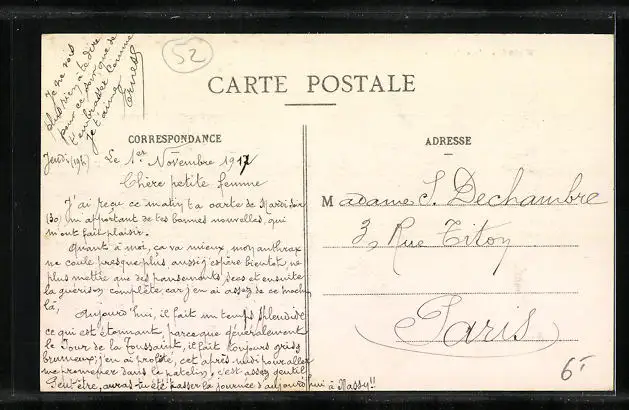 52
Je ne vois
plus rien à te dire
pour ce jour que de
t'embrasser comme
je t'aime
Ernest
CARTE POSTALE
CORRESPONDANCE
ADRESSE
Jeudi (19h) Le 1er Novembre 1917
Chère petite femme
J'ai reçu ce matin ta carte de Mardi soir
(30) m'apportant de tes bonnes nouvelles, qui
m'ont fait plaisir.
Quant à moi, ça va mieux, mon anthrax
ne coule presque plus aussi j'espère bientôt ne
plus mettre que des pansements secs et ensuite
la guérison complète, car j'en ai assez de ce
là,
Aujourd'hui, il fait un temps splendide
ce qui est étonnant, parce que généralement
le Jour de la Toussaint, il fait toujours gris,
brumeux, j'en ai profité, cet après midi pour aller
me promener dans le patelin, c'est assez gentil
Peut être, auras-tu été passer la journée d'aujourd'hui à Massy!!
Madame S. Dechambre
3, Rue Titon
Paris
6-